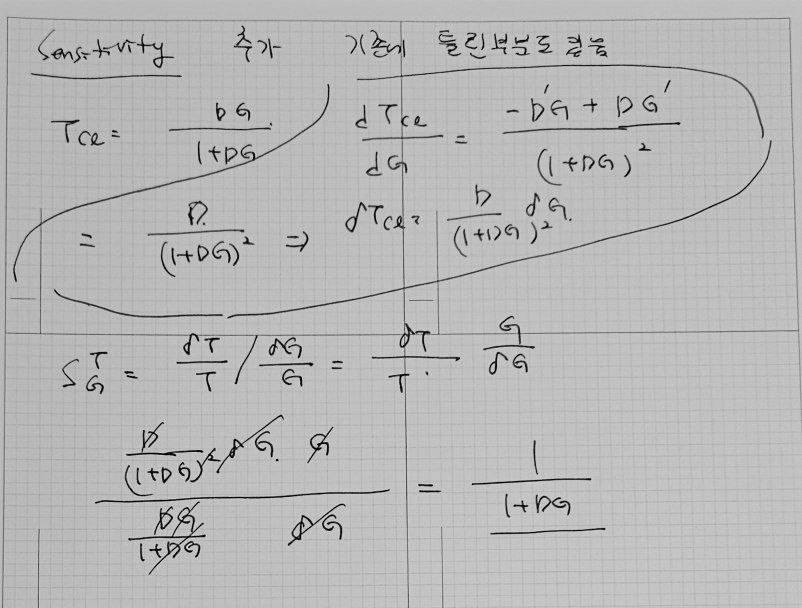 Sensitivity 추가 기존에 틀린부분도 같음
T_cl = DG / (1+DG) dT_cl / dG = (-D'G + DG') / (1+DG)^2
= D / (1+DG)^2 ⇒ δT_cl = D / (1+DG)^2 δG.
S_G^T = δT/T / δG/G = δT/T · G/δG
D/(1+DG)^2 δG. G / DG/(1+DG) δG = 1/(1+DG)